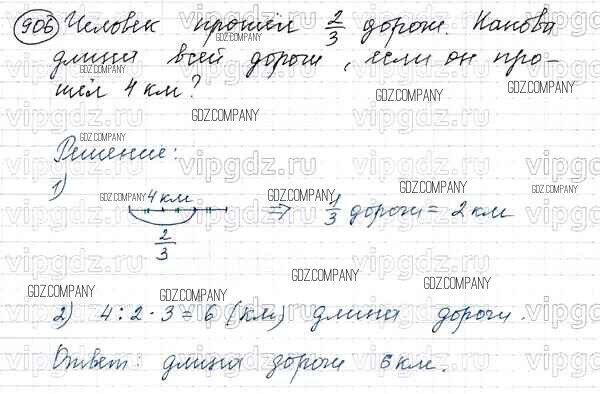 906 Человек прошёл 2/3 дороги. Какова
длина всей дороги, если он про-
шёл 4 км?
Решение:
1) 4 км
2/3
⇒ 1/3 дороги = 2 км
2) 4 : 2 · 3 = 6 (км) длина дороги.
Ответ: длина дороги 6 км.
GDZ.COMPANY
vipgdz.ru